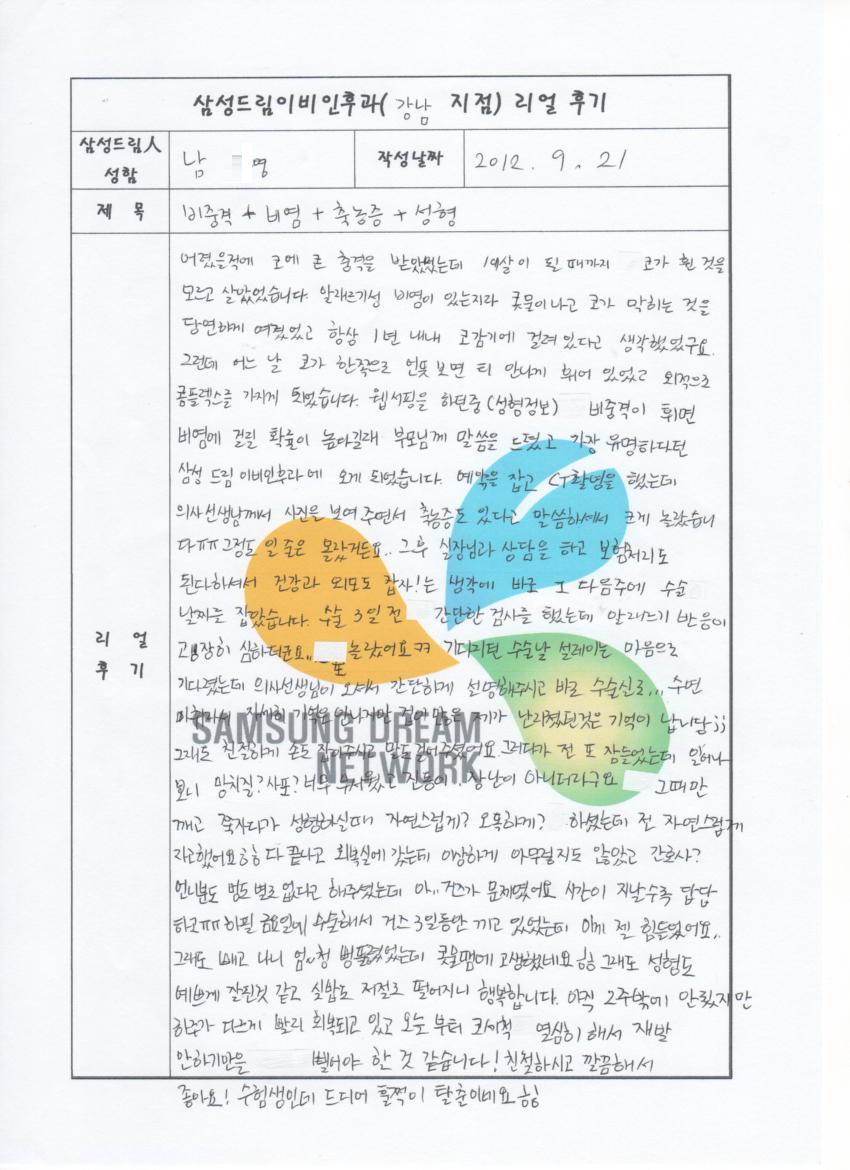 삼성드림이비인후과( 강남 지점) 리얼 후기
삼성드림人 성함 남 명 작성날짜 2012. 9. 21
제 목 비중격 + 비염 + 축농증 + 성형
리 얼 후 기
어렸을적에 코에 큰 충격을 받았었는데 19살이 될 때까지 코가 휜 것을
모르고 살았었습니다. 알래르기성 비염이 있는지라 콧물이나고 코가 막히는 것을
당연하게 여겼었고 항상 1년 내내 코감기에 걸려 있다고 생각했었구요.
그런데 어느 날 코가 한쪽으로 언뜻 보면 티 안나게 휘어 있었고 외적으로
콤플렉스를 가지게 되었습니다. 웹서핑을 하던중 (성형정보) 비중격이 휘면
비염에 걸릴 확률이 높다길래 부모님께 말씀을 드렸고 가장 유명하다던
삼성 드림 이비인후과에 오게 되었습니다. 예약을 잡고 CT촬영을 했는데
의사선생님께서 사진을 보여주면서 축농증도 있다고 말씀하셔서 크게 놀랐습니
다ㅠㅠ그정도 일 줄은 몰랐거든요.. 그후 실장님과 상담을 하고 보험처리도
된다하셔서 건강과 외모도 잡자!는 생각에 바로 그 다음주에 수술
날짜를 잡았습니다. 수술 3일 전 간단한 검사를 했는데 알래르기 반응이
굉장히 심하더군요.. 또 놀랐어요ㅋㅋ 기다리던 수술날 설레이는 마음으로
기다렸는데 의사선생님이 오셔서 간단하게 설명해주시고 바로 수술실로... 수면
마취라서 자세히 기억은 안나지만 겁이많은 제가 난리쳤던것은 기억이 납니담;;
그래도 친절하게 손도 잡아주시고 말도 걸어주셨어요. 그러다가 전 또 잠들었는데 일어나
보니 망치질? 사포? 너무 무서웠고 진동이.. 장난이 아니더라구요 그때만
깨고 죽자다가 성형하실때 자연스럽게? 오똑하게? 하셨는데 전 자연스럽게
라고했어요ㅎㅎ 다 끝나고 회복실에 갔는데 이상하게 아무렇지도 않았고 간호사?
언니분도 멍도 별로 없다고 해주셨는데 아.. 거즈가 문제였어요 시간이 지날수록 답답
하고ㅠㅠ 하필 금요일에 수술해서 거즈 3일동안 끼고 있었는데 이게 젤 힘들었어요..
그래도 빼고 나니 엄~청 뻥뚫렸었는데 콧물땜에 고생했네요ㅎㅎ 그래도 성형도
예쁘게 잘된것 같고 실밥도 저절로 떨어지니 행복합니다. 아직 2주밖에 안됬지만
하루가 다르게 빨리 회복되고 있고 오늘 부터 코세척 열심히 해서 재발
안하기만을 빌어야 한 것 같습니다! 친절하시고 깔끔해서
좋아요! 수험생인데 드디어 훌쩍이 탈출이네요ㅎㅎ
SAMSUNG DREAM
NETWORK